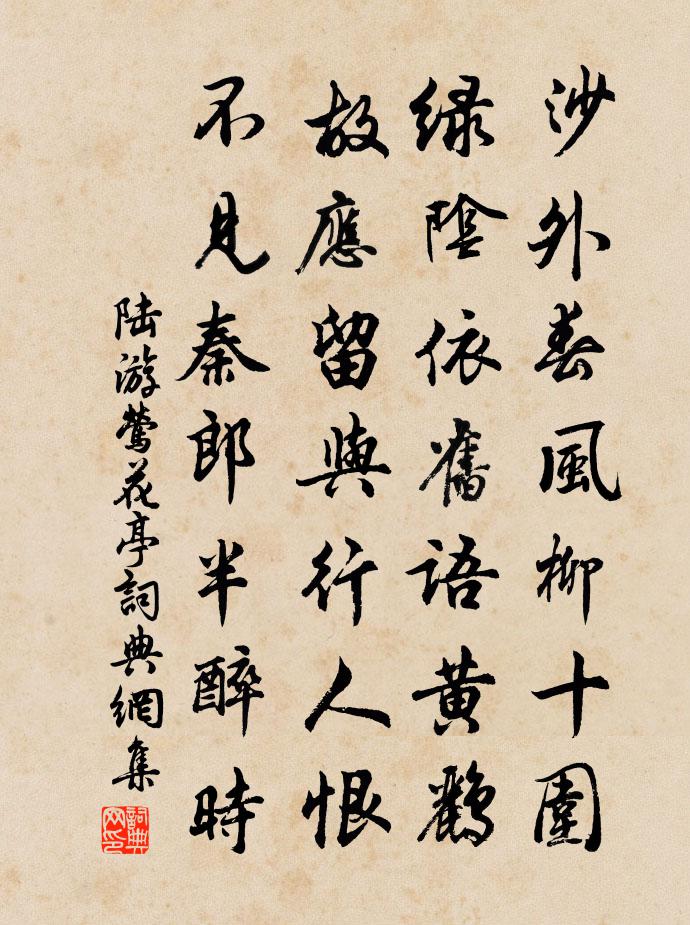 沙外春風柳十圍
綠陰依舊語黃鸝
故應留與行人恨
不見秦郎半醉時
陸游鶯花亭詞典網集
詞典網印